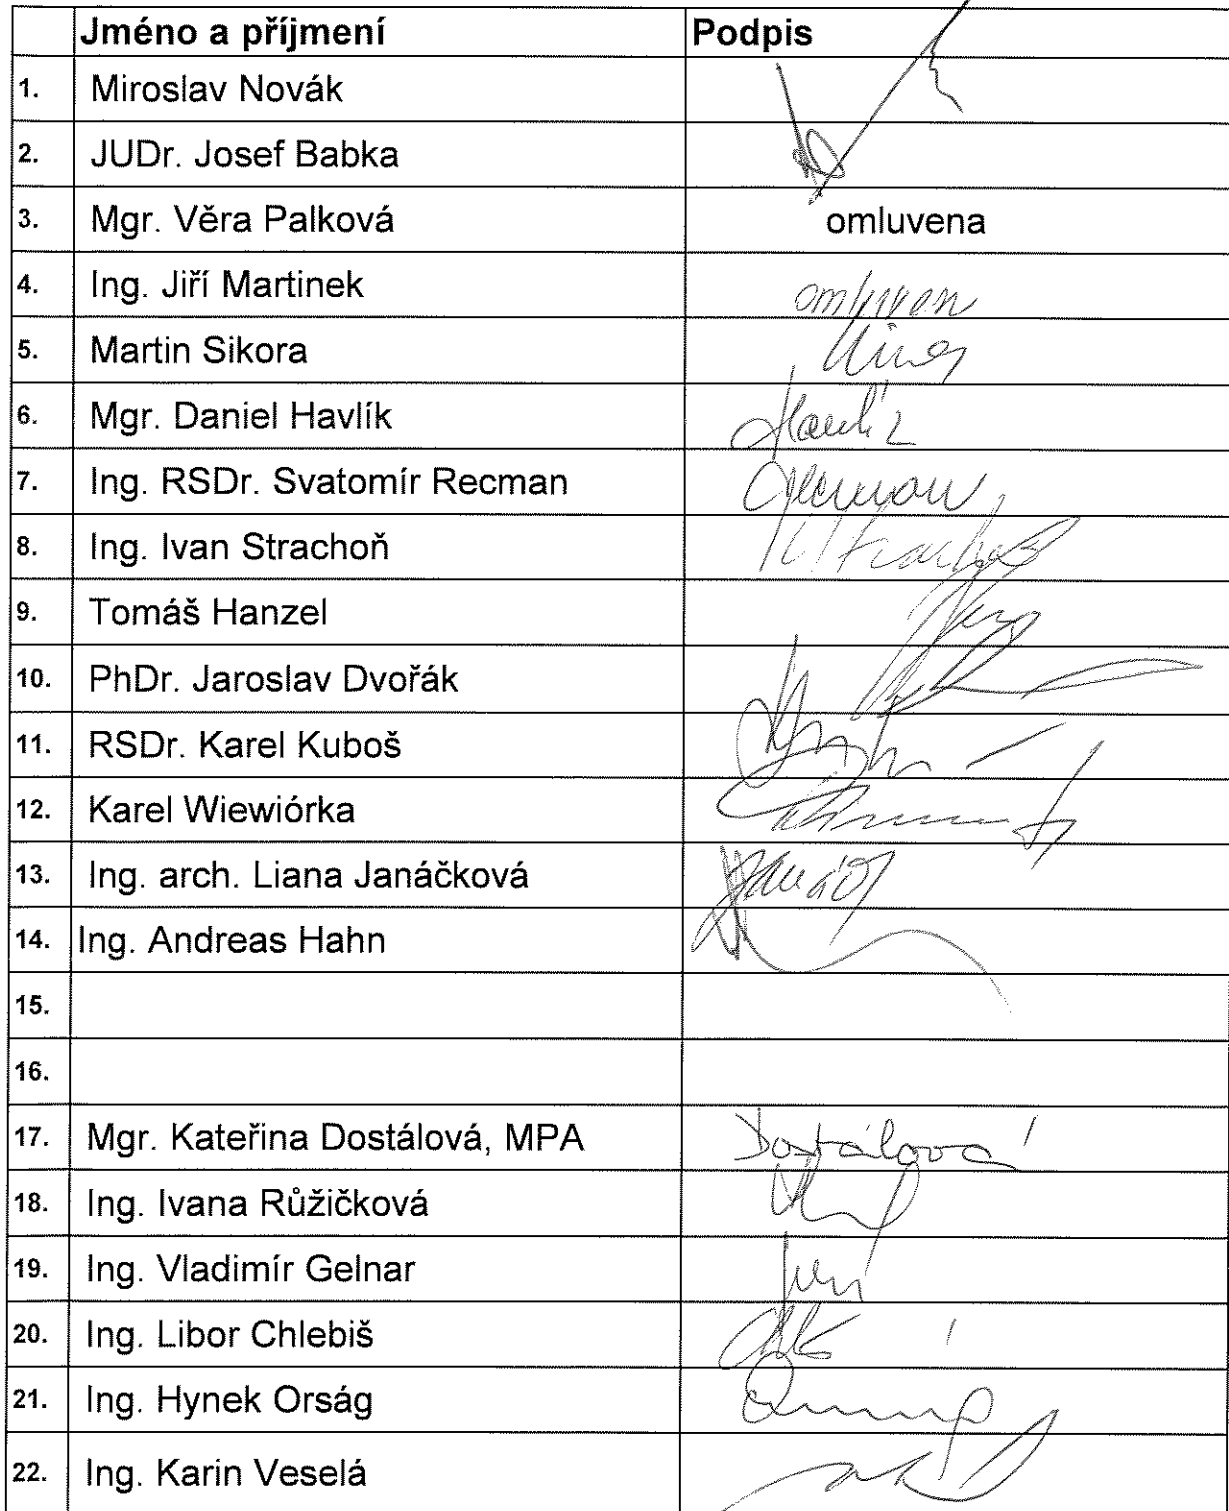 Jméno a příjmení Podpis
1. Miroslav Novák
2. JUDr. Josef Babka
3. Mgr. Věra Palková omluvena
4. Ing. Jiří Martinek omluven
5. Martin Sikora
6. Mgr. Daniel Havlík
7. Ing. RSDr. Svatomír Recman
8. Ing. Ivan Strachoň
9. Tomáš Hanzel
10. PhDr. Jaroslav Dvořák
11. RSDr. Karel Kuboš
12. Karel Wiewiórka
13. Ing. arch. Liana Janáčková
14. Ing. Andreas Hahn
15.
16.
17. Mgr. Kateřina Dostálová, MPA Dostálová
18. Ing. Ivana Růžičková
19. Ing. Vladimír Gelnar
20. Ing. Libor Chlebiš
21. Ing. Hynek Orság
22. Ing. Karin Veselá